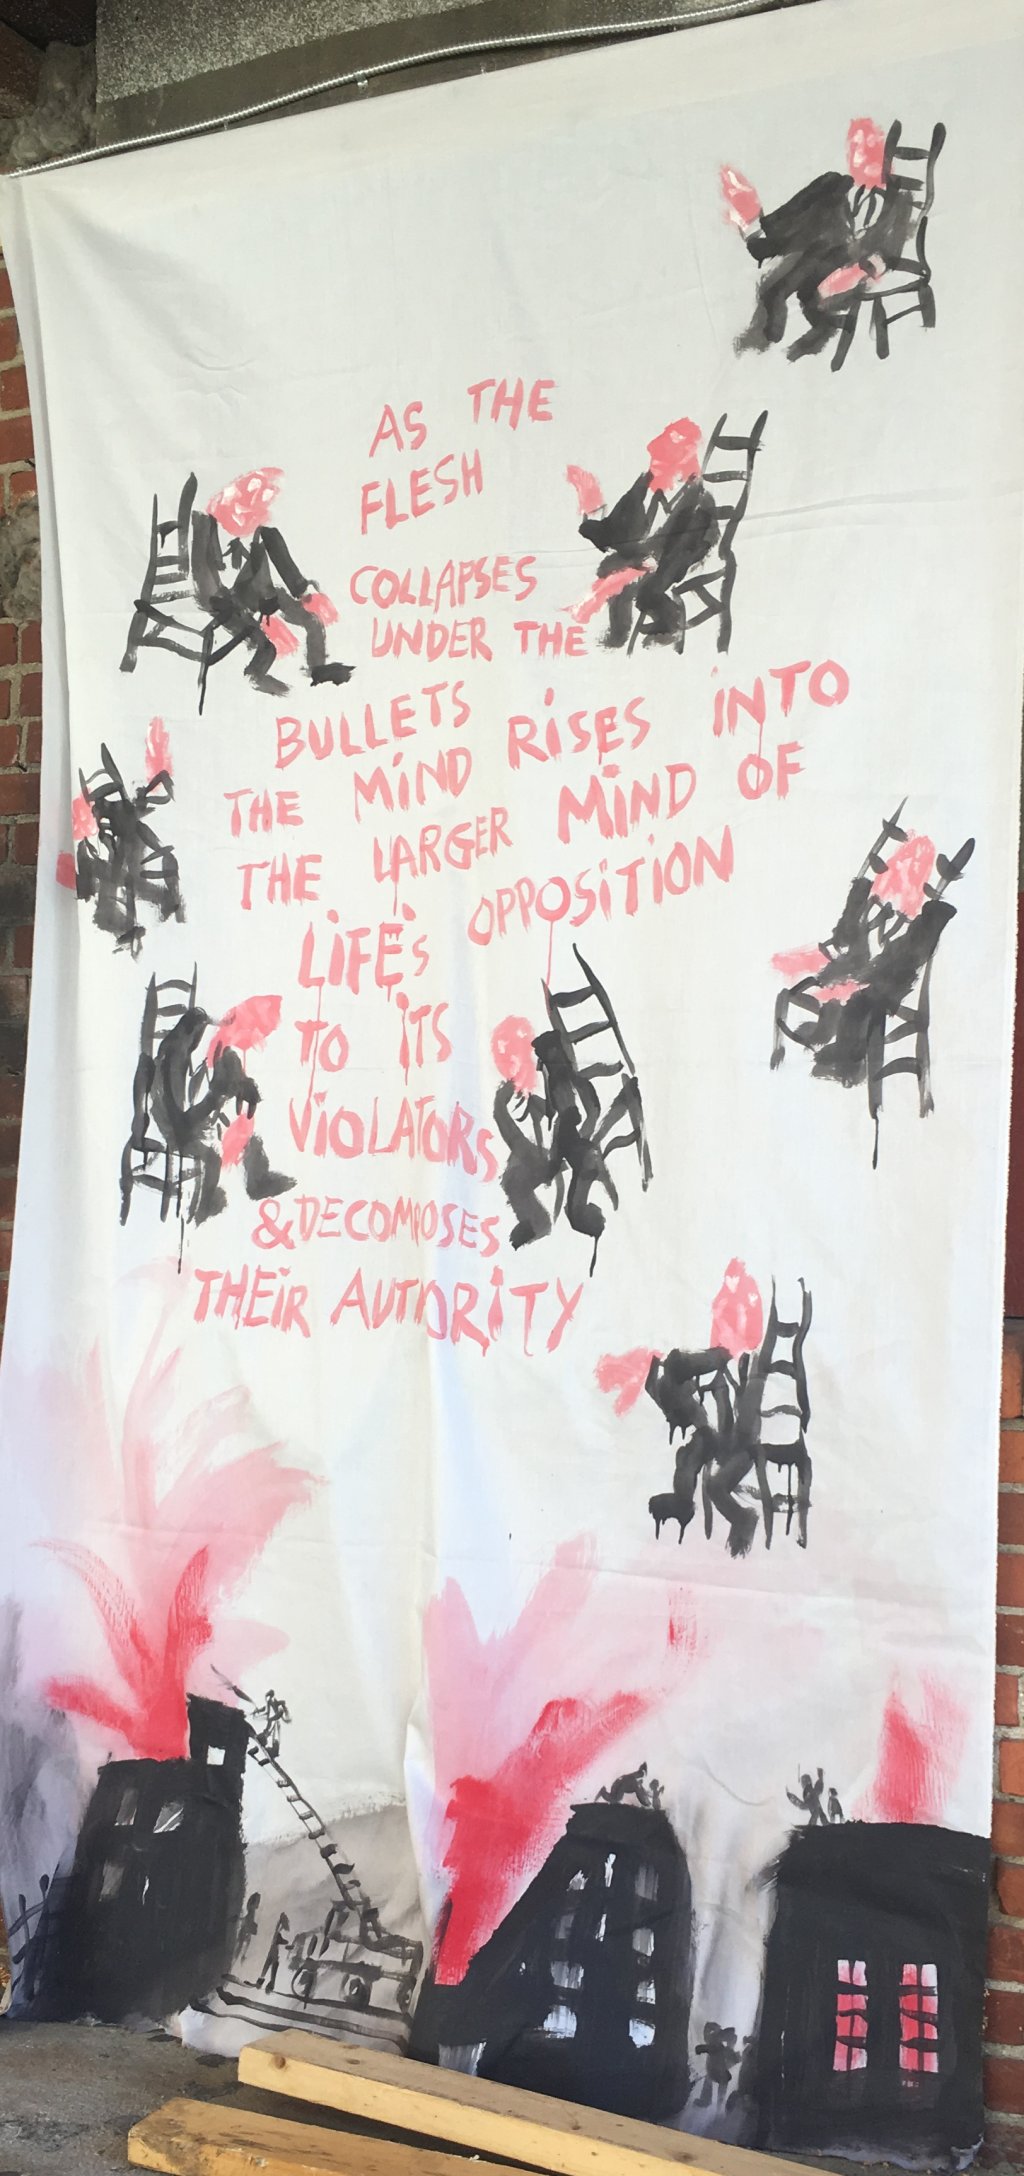 AS THE
FLESH
COLLAPSES
UNDER THE
BULLETS
THE MIND RISES INTO
THE LARGER MIND OF
LIFE'S OPPOSITION
TO ITS
VIOLATORS
& DECOMPOSES
THEIR AUTHORITY